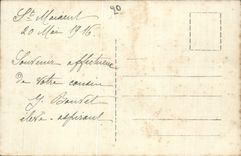 St Maixent
20 Mai 1916
Souvenir affectueux
de votre cousin
G. Bauvel
élève-aspirant
20